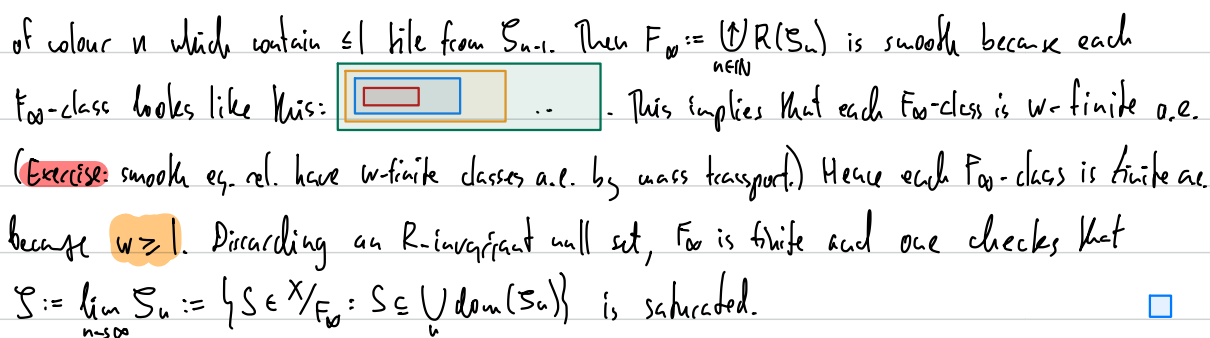 of colour n which contain ≤1 tile from ζₙ₋₁. Then F_∞ := ⋃↑_{n∈ℕ} R(ζₙ) is smooth because each
F_∞-class looks like this: .. . This implies that each F_∞-class is w-finite a.e.
(Exercise: smooth eq. rel. have w-finite classes a.e. by mass transport.) Hence each F_∞-class is finite a.e.
because w ≥ 1. Discarding an R-invariant null set, F_∞ is finite and one checks that
ζ := lim_{n→∞} ζₙ := {S ∈ X/F_∞ : S ⊆ ⋃ₙ dom(ζₙ)} is saturated.